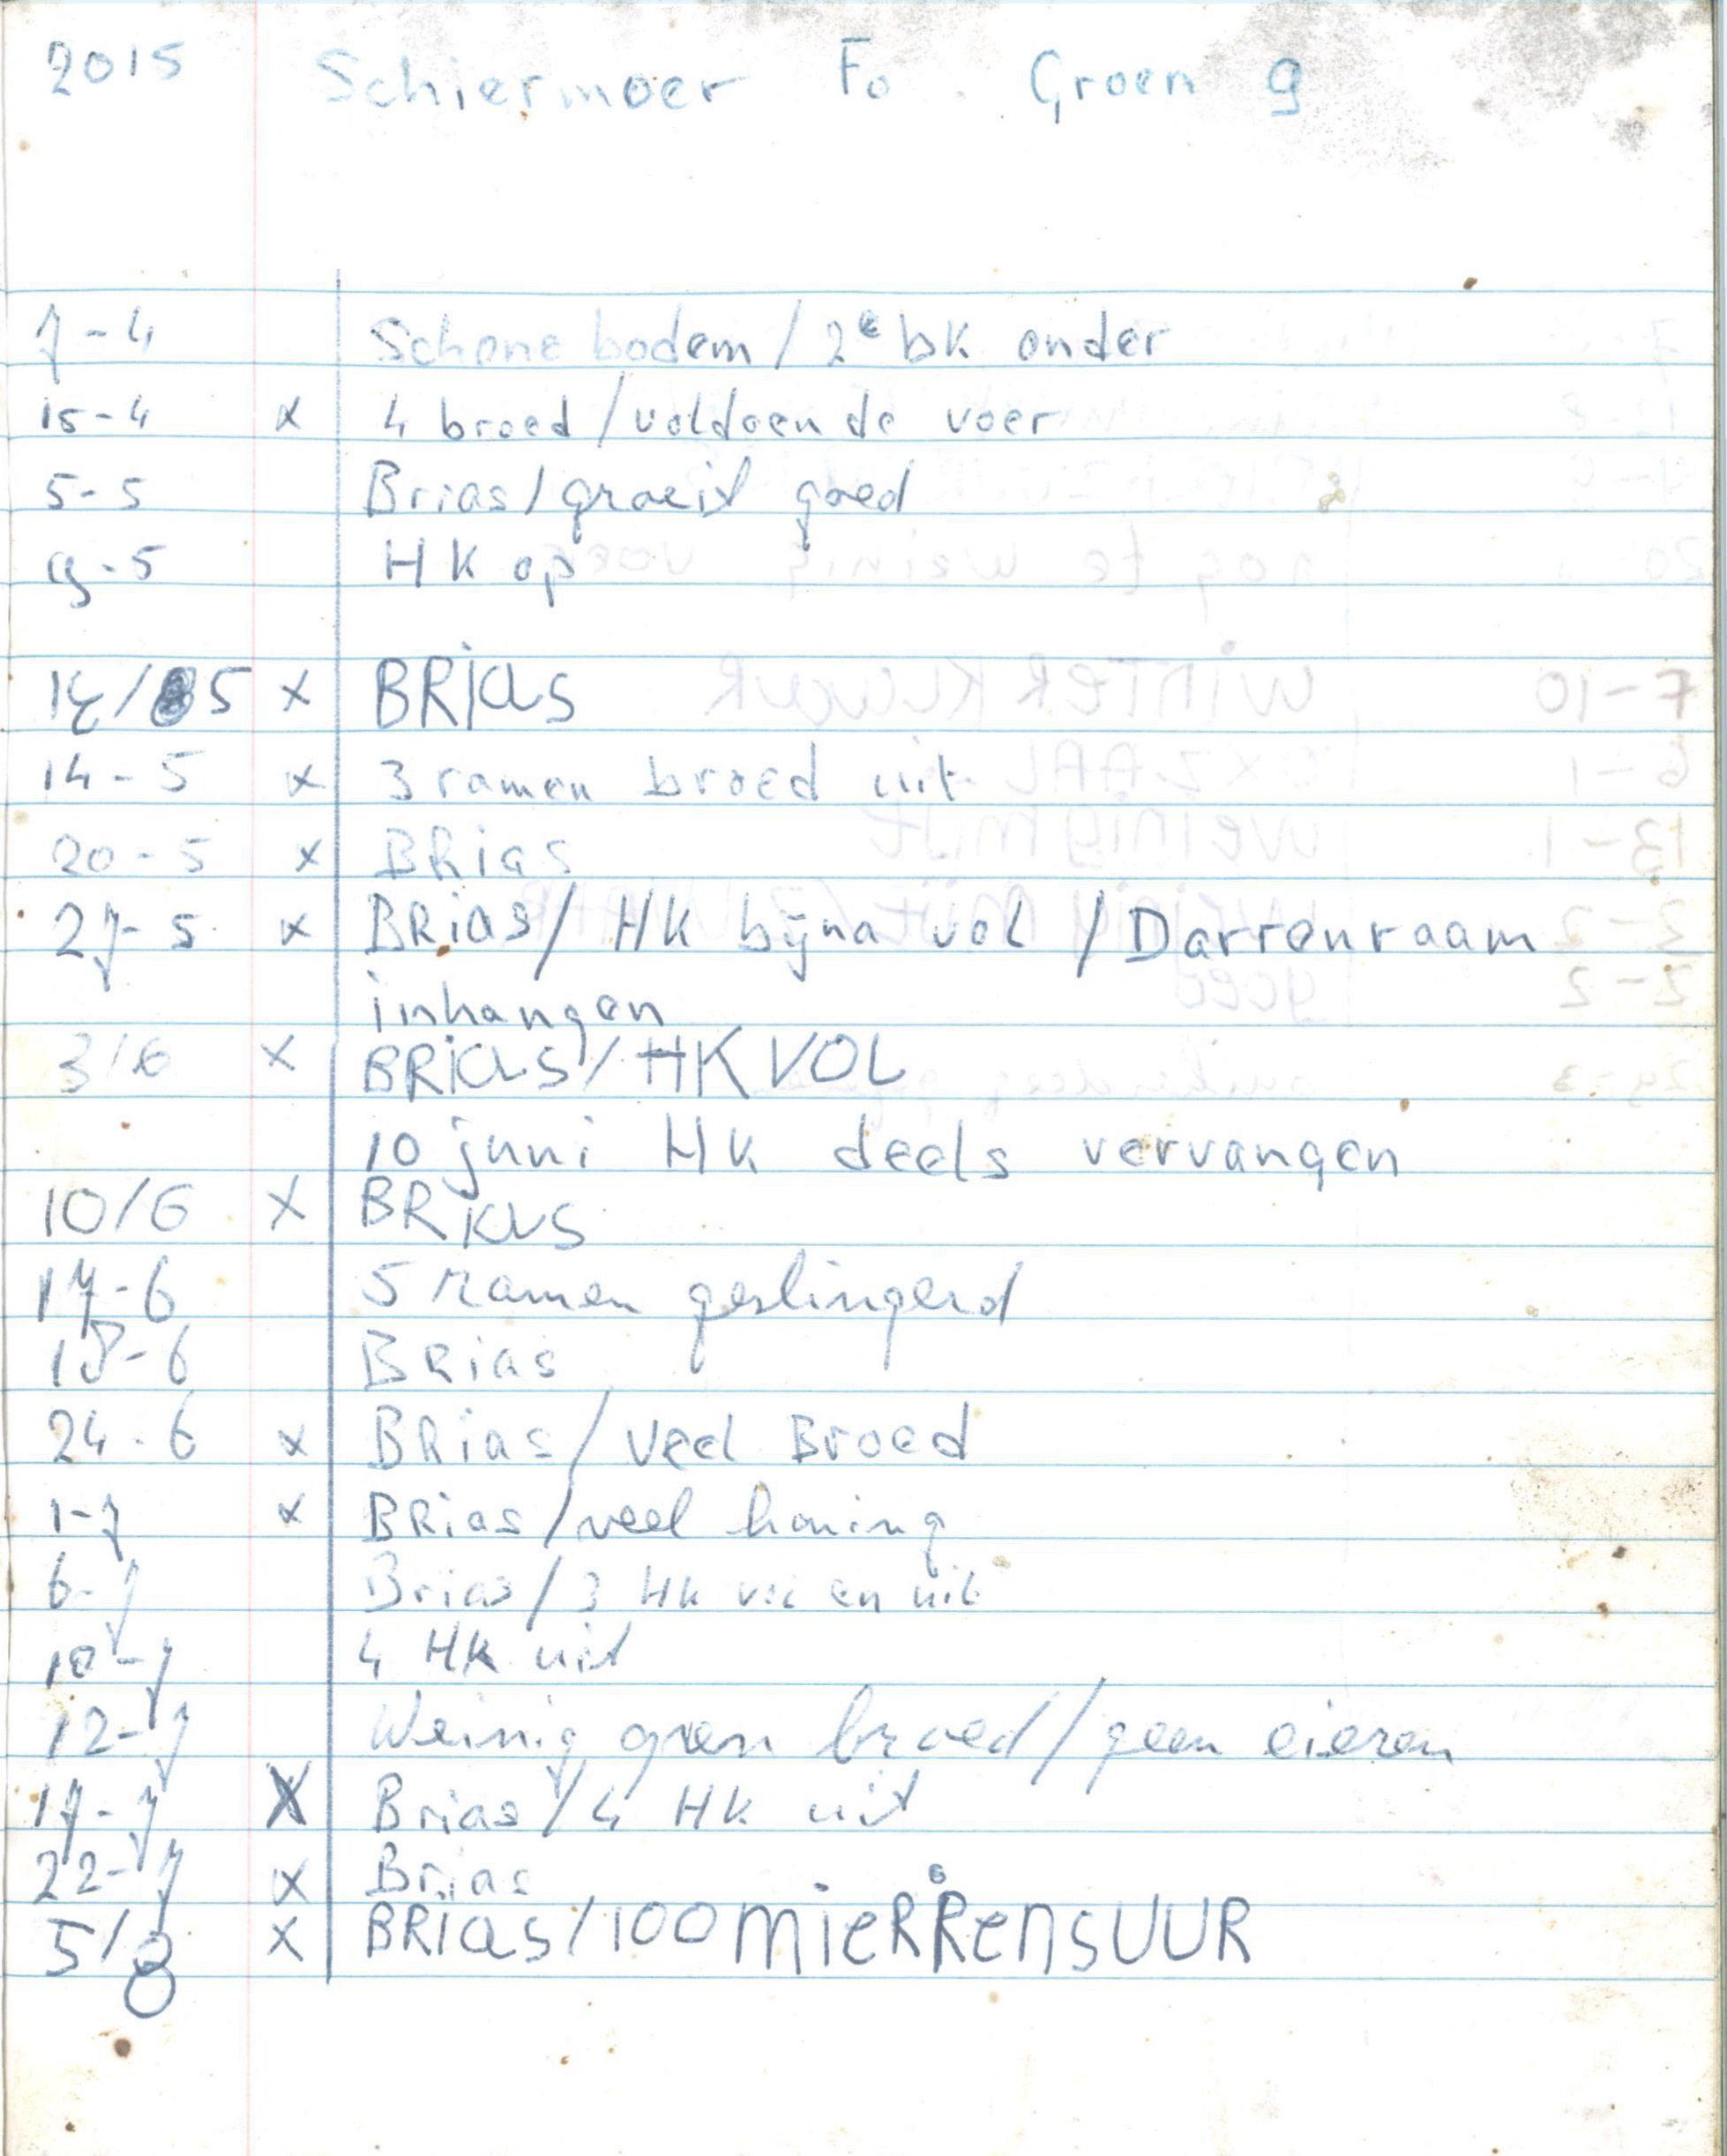 2015 Schiermoer Fo. Groen 9
7-4 Schone bodem / 2e bk onder
15-4 x 4 broed / voldoende voer
5-5 Brias / groeit goed
9-5 HK op
14/5 x BRias
14-5 x 3 ramen broed uit
20-5 x BRias
27-5 x BRias / HK bijna vol / Darrenraam
inhangen
3/6 x BRias / HK VOL
10 juni HK deels vervangen
10/6 x BRias
17-6 5 ramen geslingerd
18-6 BRias
24-6 x BRias / veel Broed
1-7 x BRias / veel honing
6-7 Brias / 3 HK en uit
10-7 4 HK uit
12-7 Weinig open broed / geen eieren
17-7 X Brias / 4 HK uit
22-7 x Brias
5/8 x BRias / 100 mieRRensUUR